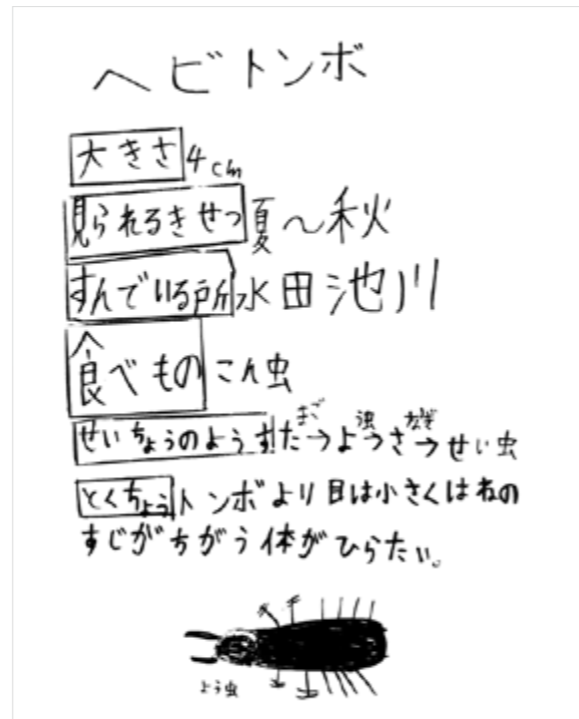 ヘビトンボ
大きさ 4cm
見られるきせつ 夏～秋
すんでいる所 水田池川
食べもの こん虫
せいちょうのようす たまご→よう虫→さなぎ→せい虫
とくちょう トンボより目は小さくはねの
すじがちがう体がひらたい。
よう虫